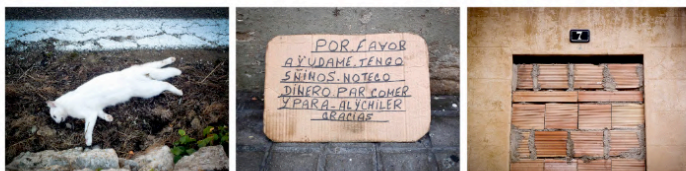 POR. FAVOR
AYUDAME. TENGO
5 NIÑOS. NOTEGO
DINERO. PAR COMER
Y PARA - ALYCHILER
GRACIAS
7